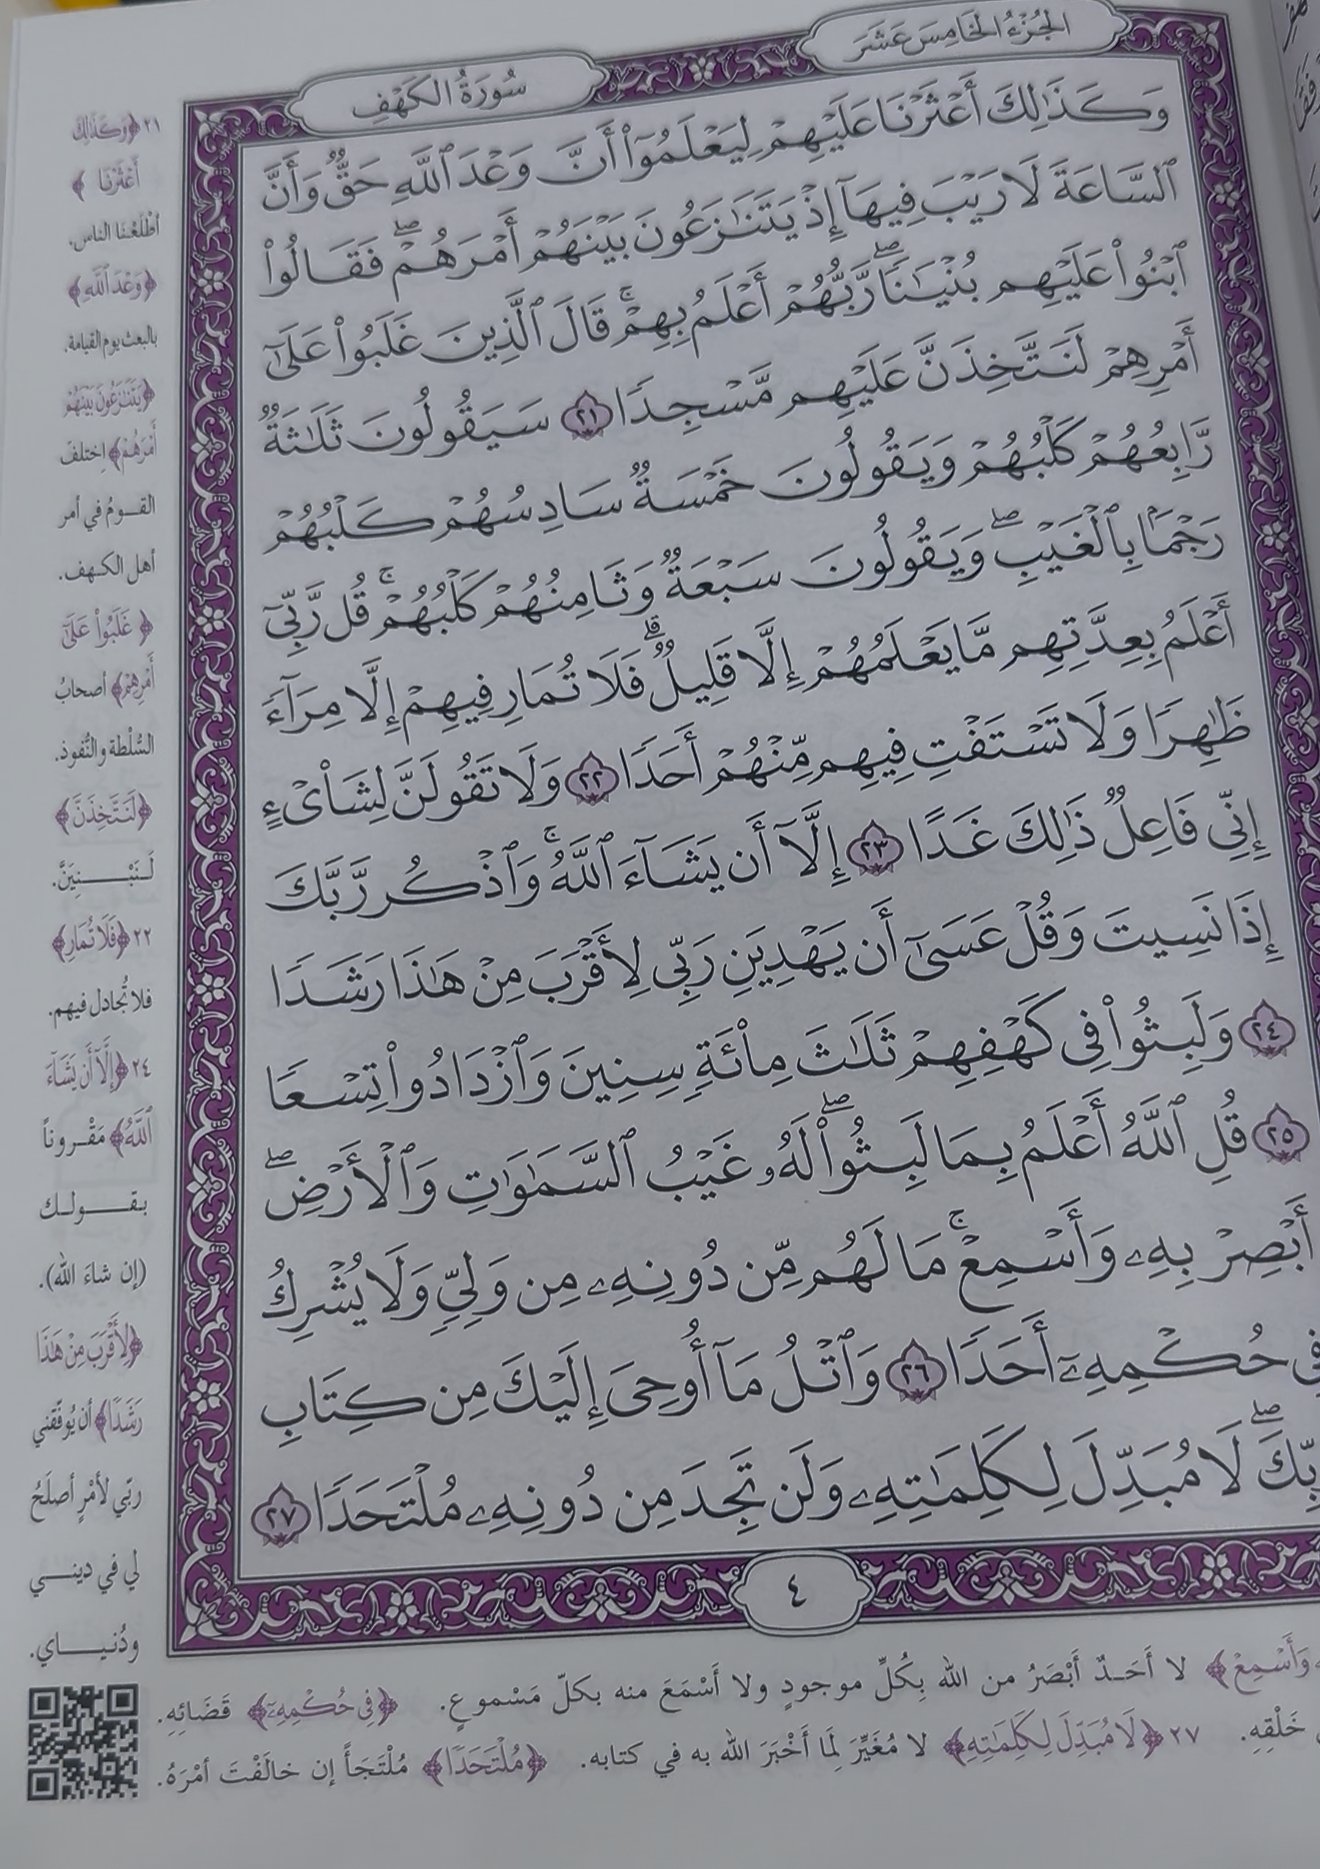 الجُزْءُ الخَامِسَ عَشَرَ
سُورَةُ الكَهْفِ
وَكَذَٰلِكَ أَعْثَرْنَا عَلَيْهِمْ لِيَعْلَمُوٓا۟ أَنَّ وَعْدَ ٱللَّهِ حَقٌّ وَأَنَّ
ٱلسَّاعَةَ لَا رَيْبَ فِيهَآ إِذْ يَتَنَٰزَعُونَ بَيْنَهُمْ أَمْرَهُمْ ۖ فَقَالُوا۟
ٱبْنُوا۟ عَلَيْهِم بُنْيَٰنًا ۖ رَّبُّهُمْ أَعْلَمُ بِهِمْ ۚ قَالَ ٱلَّذِينَ غَلَبُوا۟ عَلَىٰٓ
أَمْرِهِمْ لَنَتَّخِذَنَّ عَلَيْهِم مَّسْجِدًا ٢١ سَيَقُولُونَ ثَلَٰثَةٌ
رَّابِعُهُمْ كَلْبُهُمْ وَيَقُولُونَ خَمْسَةٌ سَادِسُهُمْ كَلْبُهُمْ
رَجْمًۢا بِٱلْغَيْبِ ۖ وَيَقُولُونَ سَبْعَةٌ وَثَامِنُهُمْ كَلْبُهُمْ ۚ قُل رَّبِّىٓ
أَعْلَمُ بِعِدَّتِهِم مَّا يَعْلَمُهُمْ إِلَّا قَلِيلٌ ۗ فَلَا تُمَارِ فِيهِمْ إِلَّا مِرَآءً
ظَٰهِرًا وَلَا تَسْتَفْتِ فِيهِم مِّنْهُمْ أَحَدًا ٢٢ وَلَا تَقُولَنَّ لِشَا۟ىْءٍ
إِنِّى فَاعِلٌ ذَٰلِكَ غَدًا ٢٣ إِلَّآ أَن يَشَآءَ ٱللَّهُ ۚ وَٱذْكُر رَّبَّكَ
إِذَا نَسِيتَ وَقُلْ عَسَىٰٓ أَن يَهْدِيَنِ رَبِّى لِأَقْرَبَ مِنْ هَٰذَا رَشَدًا
٢٤ وَلَبِثُوا۟ فِى كَهْفِهِمْ ثَلَٰثَ مِا۟ئَةٍ سِنِينَ وَٱزْدَادُوا۟ تِسْعًا
٢٥ قُلِ ٱللَّهُ أَعْلَمُ بِمَا لَبِثُوا۟ ۖ لَهُۥ غَيْبُ ٱلسَّمَٰوَٰتِ وَٱلْأَرْضِ ۖ
أَبْصِرْ بِهِۦ وَأَسْمِعْ ۚ مَا لَهُم مِّن دُونِهِۦ مِن وَلِىٍّ وَلَا يُشْرِكُ
فِى حُكْمِهِۦٓ أَحَدًا ٢٦ وَٱتْلُ مَآ أُوحِىَ إِلَيْكَ مِن كِتَابِ
رَبِّكَ ۖ لَا مُبَدِّلَ لِكَلِمَٰتِهِۦ وَلَن تَجِدَ مِن دُونِهِۦ مُلْتَحَدًا ٢٧
٤
٢١ ﴿وَكَذَٰلِكَ
أَعْثَرْنَا﴾
أطْلَعْنَا الناس.
﴿وَعْدَ ٱللَّهِ﴾
بالبعث يوم القيامة.
﴿يَتَنَٰزَعُونَ بَيْنَهُمْ
أَمْرَهُمْ﴾ اختلفَ
القومُ في أمر
أهل الكهف.
﴿غَلَبُوا۟ عَلَىٰٓ
أَمْرِهِمْ﴾ أصحابُ
السُّلْطة والنُّفوذ.
﴿لَنَتَّخِذَنَّ﴾
لَنَبْنِيَنَّ.
٢٢ ﴿فَلَا تُمَارِ﴾
فلا تُجادل فيهم.
٢٤ ﴿إِلَّآ أَن يَشَآءَ
ٱللَّهُ﴾ مَقْروناً
بقولك
(إن شاءَ الله).
﴿لِأَقْرَبَ مِنْ هَٰذَا
رَشَدًا﴾ أن يُوفّقني
ربّي لأمْرٍ أصلَحُ
لي في ديني
ودُنياي.
وَأَسْمِعْ﴾ لا أَحَدٌ أبْصَرُ من الله بِكُلِّ موجودٍ ولا أَسْمَعَ منه بكلّ مَسْموعٍ. ﴿فِى حُكْمِهِۦٓ﴾ قَضَائِهِ.
خَلْقِهِ. ٢٧ ﴿لَا مُبَدِّلَ لِكَلِمَٰتِهِۦ﴾ لا مُغَيِّرَ لِمَا أَخْبَرَ الله به في كتابه. ﴿مُلْتَحَدًا﴾ مُلْتَجَأً إن خالَفْتَ أمْرَهُ.